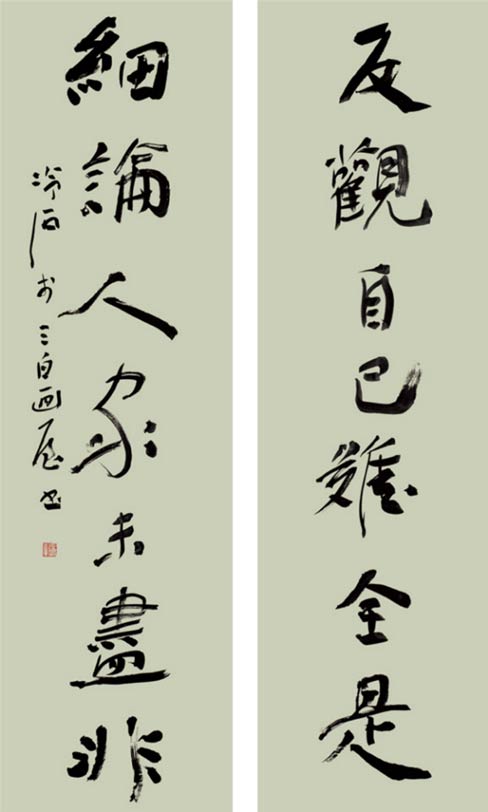 反觀自己難全是
細論人家未盡非
冷石於三白画屋書